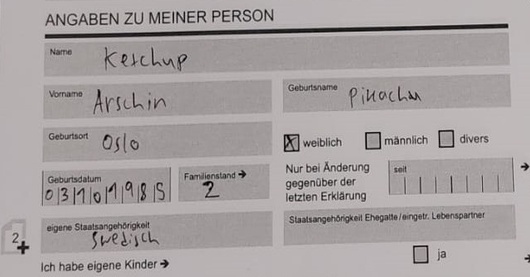 ANGABEN ZU MEINER PERSON
Name
Ketchup
Vorname
Arschin
Geburtsname
Pikachu
Geburtsort
Oslo
X weiblich männlich divers
Geburtsdatum
03101985
Familienstand →
2
Nur bei Änderung
gegenüber der
letzten Erklärung
seit
→
eigene Staatsangehörigkeit
Swedisch
Staatsangehörigkeit Ehegatte/eingetr. Lebenspartner
2+
Ich habe eigene Kinder →
ja